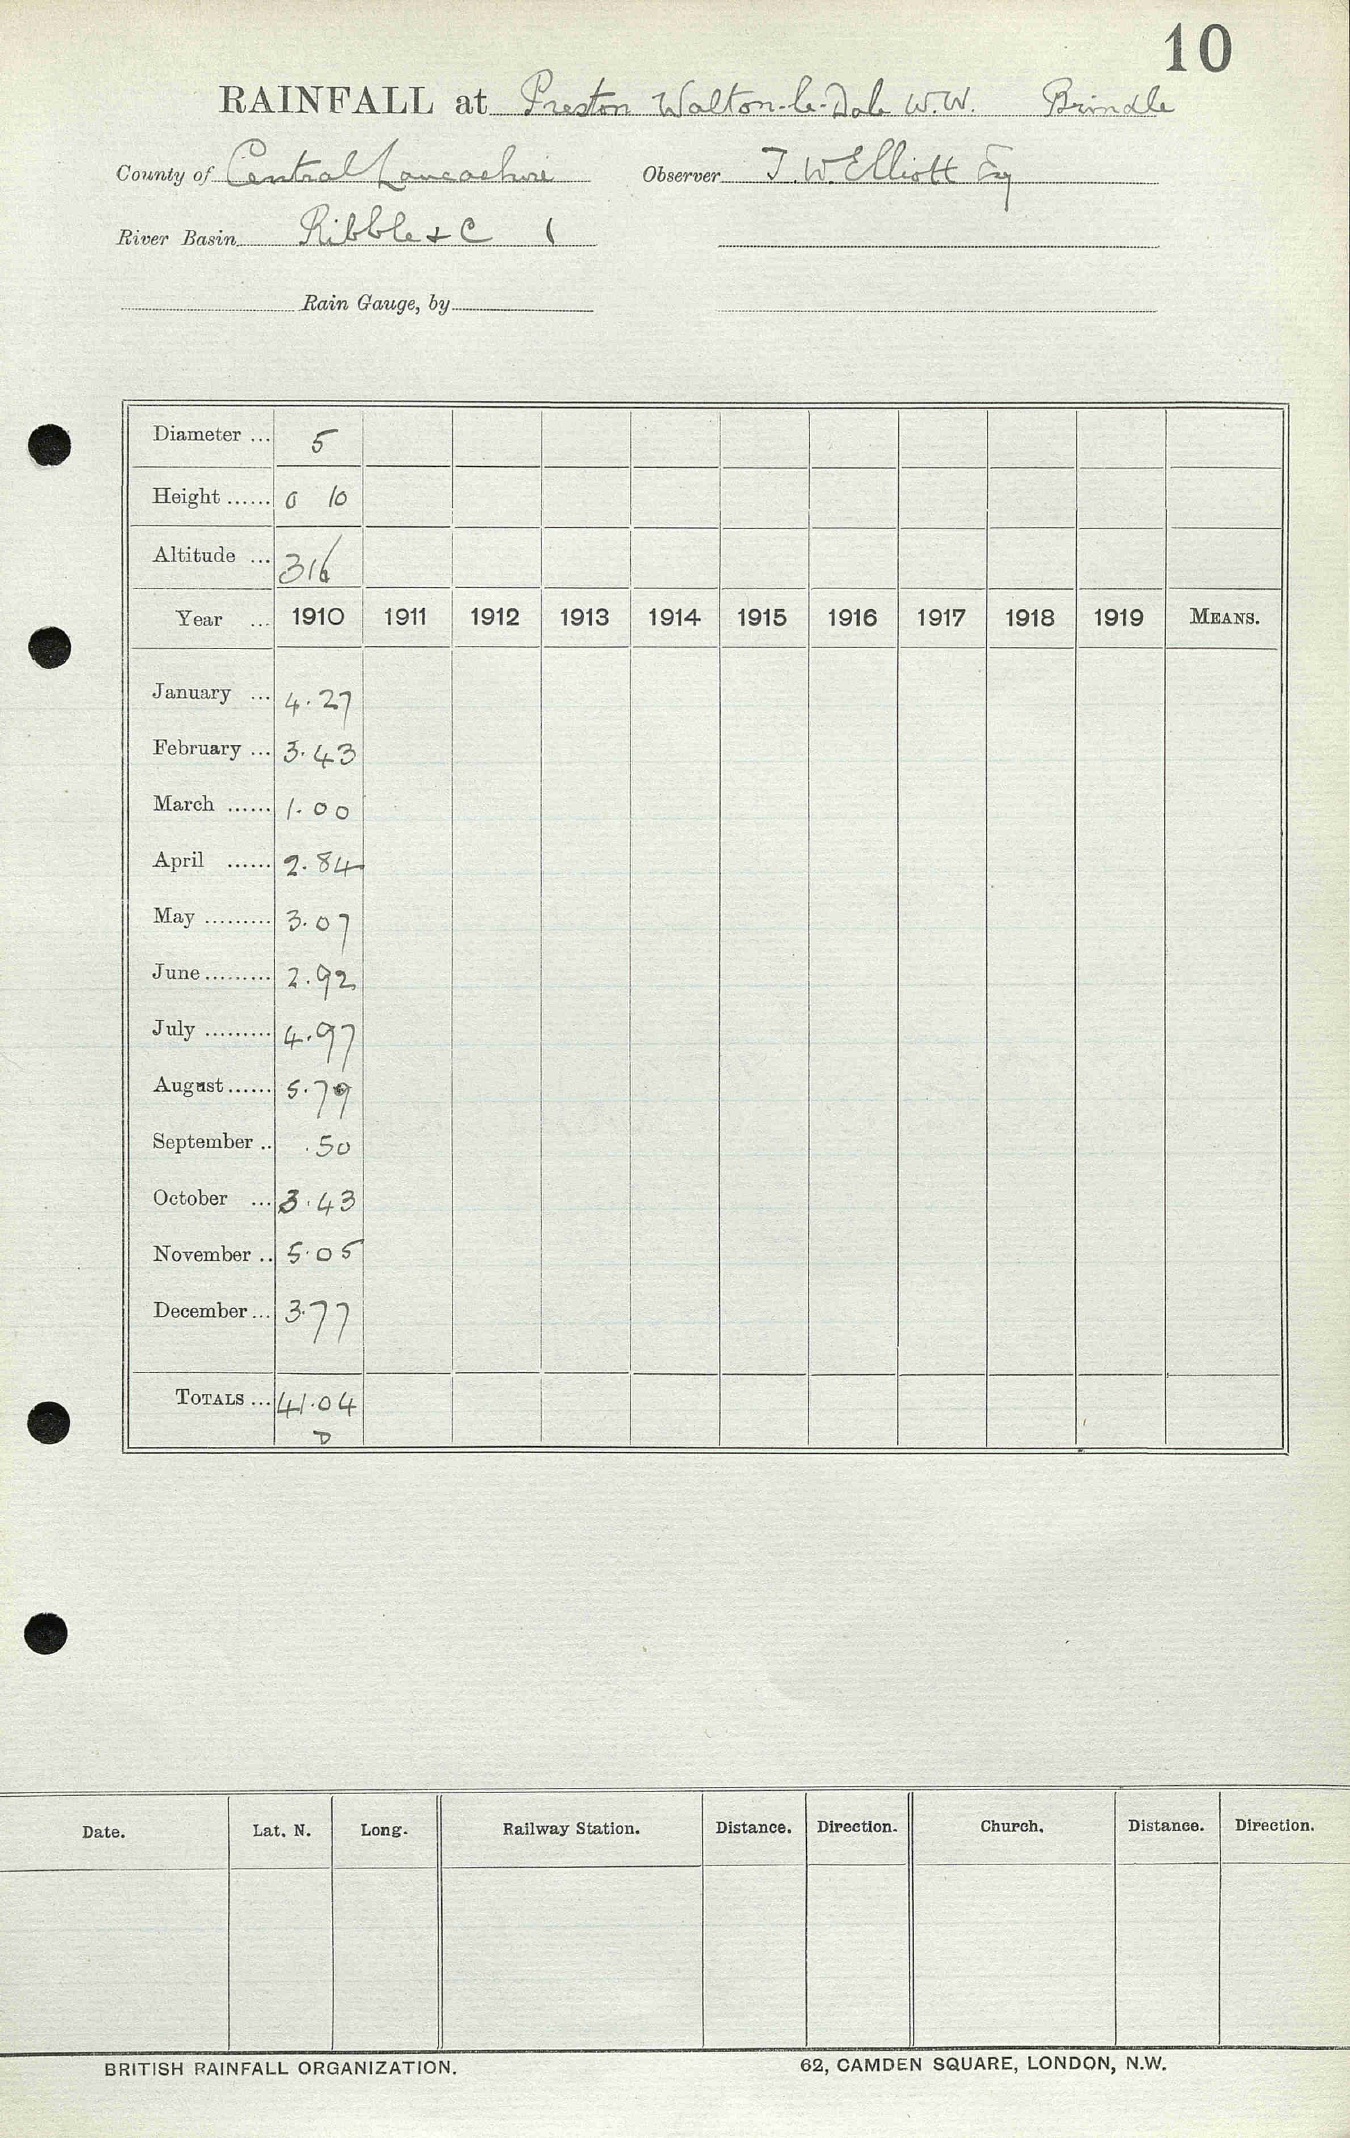 10
RAINFALL at Preston Walton-le-Dale W.W. Brindle
County of Central Lancashire Observer T. W. Elliott Esq
River Basin Ribble & C 1
Rain Gauge, by
Diameter ... 5
Height ...... 0 10
Altitude ... 316
Year ... 1910 1911 1912 1913 1914 1915 1916 1917 1918 1919 MEANS.
January ... 4.27
February ... 3.43
March ...... 1.00
April ...... 2.84
May ......... 3.07
June ......... 2.92
July ......... 4.97
August ...... 5.79
September .. .50
October ... 3.43
November .. 5.05
December ... 3.77
TOTALS ... 41.04
D
Date. Lat. N. Long. Railway Station. Distance. Direction. Church. Distance. Direction.
BRITISH RAINFALL ORGANIZATION. 62, CAMDEN SQUARE, LONDON, N.W.